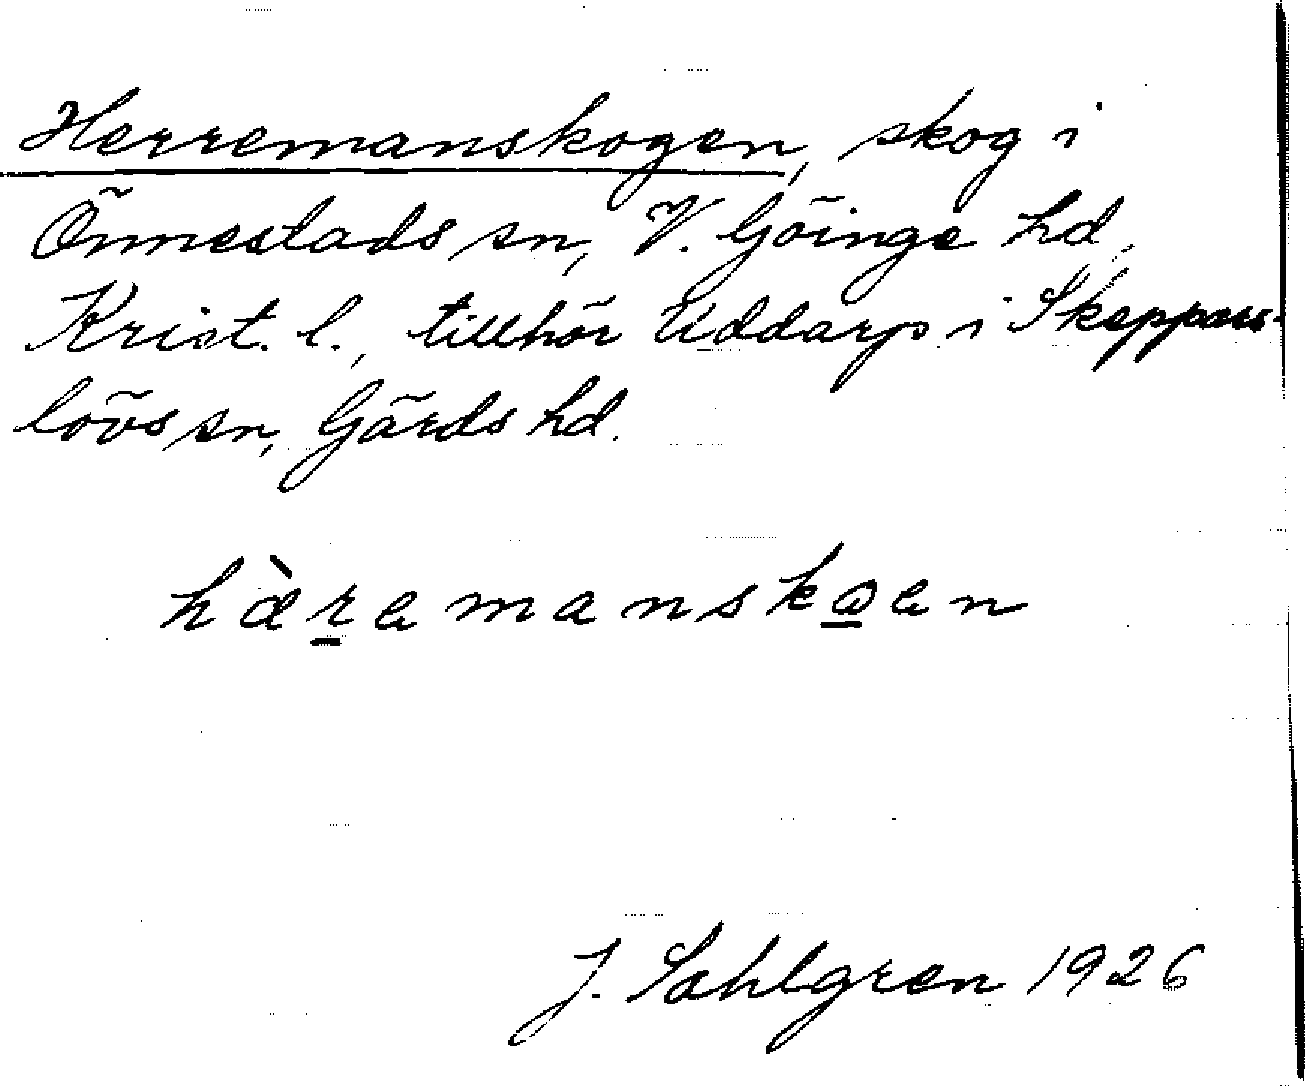 Herremanskogen, skog i
Önnestads sn, V. Göinge hd,
Krist. l., tillhör Uddarp i Skeppars-
lövs sn, Gärds hd.
hæ̀r̲emansko̲en
J. Sahlgren 1926